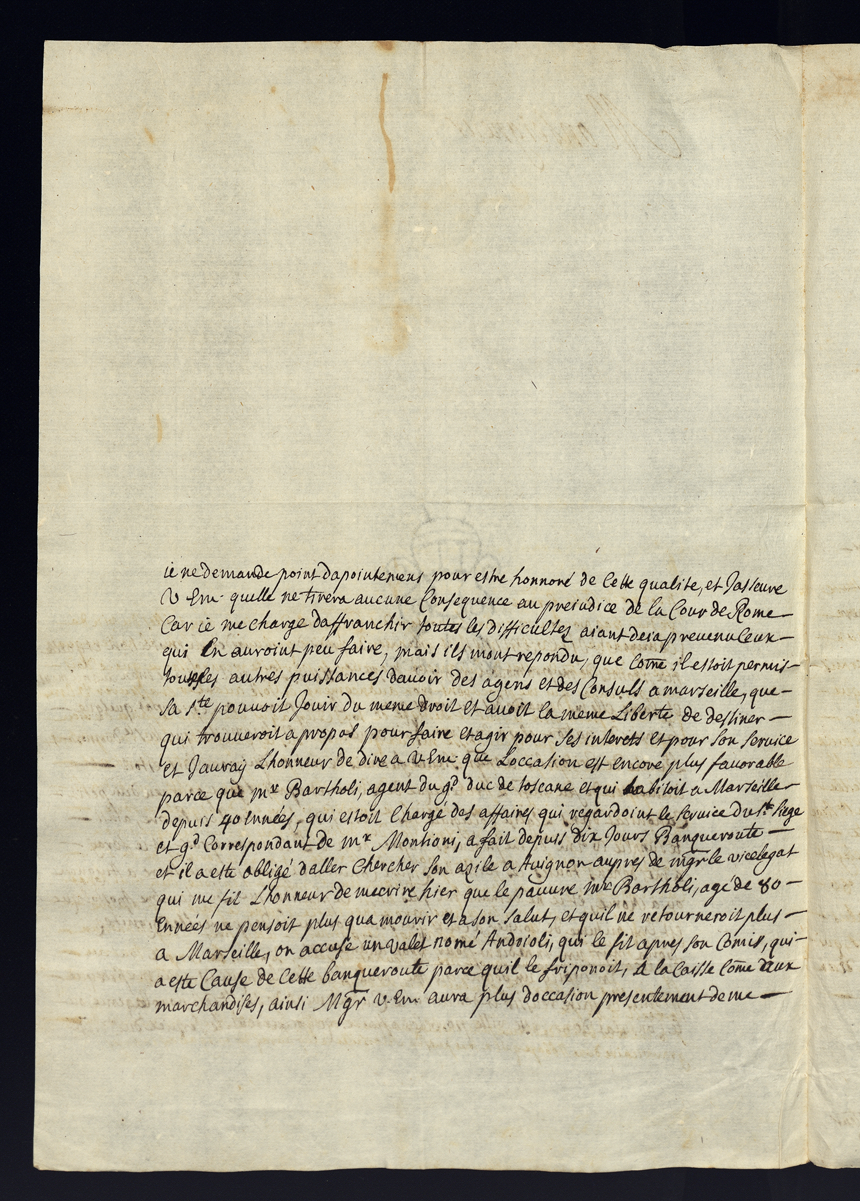 ie ne demande point dapointemens pour estre honnoré de Cette qualite, et Jasseure
V Em. quelle ne tirera aucune Consequence au preiudice de la Cour de Rome
Car ie me charge daffranchir toutes les difficultez aiant desia prevenu Ceux
qui En auroint peu faire, mais ils mont repondu, que Come il estoit permis
toutes les autres puissances davoir des agens et des Consuls a marseille, que
sa Ste pouvoit Jouir du meme droit et avoit la meme Liberte de destiner
qui trouveroit apropos pour faire et agir pour ses interets et pour son service
et Jauray Lhonneur de dire a V Em que Loccasion est encore plus favorable
parce que mr Bartholi, agent du gd duc de toscane et qui habitoit a Marseille
depuis 40 Années, qui estoit Chargé des affaires qui regardoint le service du St Siege
et gd Correspondant de mr Montioni, a fait depuis dix Jours Banqueroute
et il a esté obligé daller Chercher son azile a Avignon aupres de mgr le vicelegat
qui me fit Lhonneur de mecrire hier que le pauvre mr Bartholi, agé de 80
Années ne pensoit plus qua mourir et a son salut, et quil ne retourneroit plus
a Marseille, on accuse un valet nomé Andrioli, qui le fit apres son Comis, qui
a esté Cause de Cette banqueroute parce quil le friponoit, a la Caisse Come aux
marchandises, ainsi Mgr V. Em aura plus doccasion presentement de me